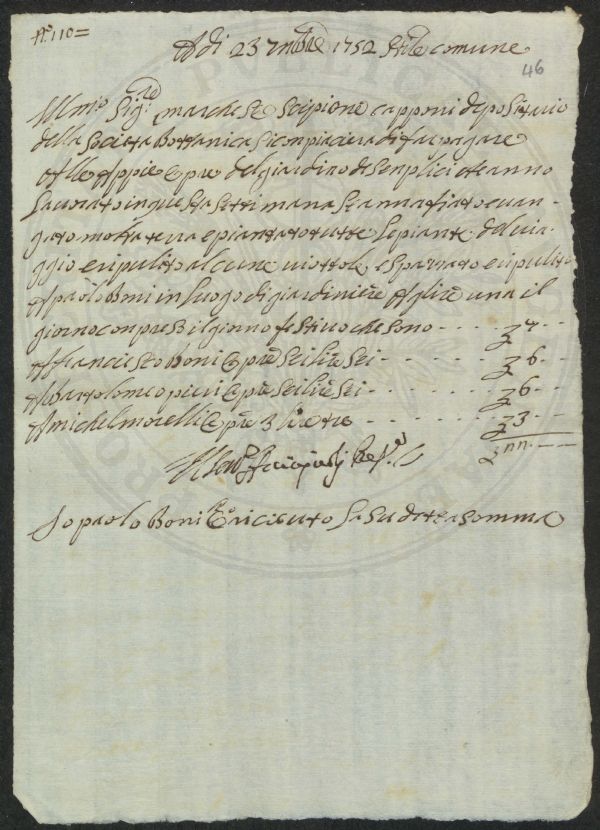 N° 110=
A di 23 7mbre 1752 Stile comune
46
Illmo Sigre marchese Scipione capponi depositario
della Societa Bottanica si conpiacera di far pagare
Alle Appie Opre del giardino de Senplici che anno
lavorato in questa settimana Scannafiato e van-
gato molta terra e piantato tutte le piante del via-
ggio e ripulito alcune viottole e spazzato e ripulito
A paolo Boni in luogo di giardiniere A lire una il
giorno conpreso il giorno festivo che sono - - - - £ 7 - -
A franciesco Boni Opre sei lire sei - - - - - £ 6 - -
A Bartolomeo pieri Opre sei lire sei - - - - £ 6 - -
A michel morelli Opre 3 lire tre - - - - - £ 3 - -
£ 22 - -
Io paolo Boni O riceuto la su detta somma
PUBLIC